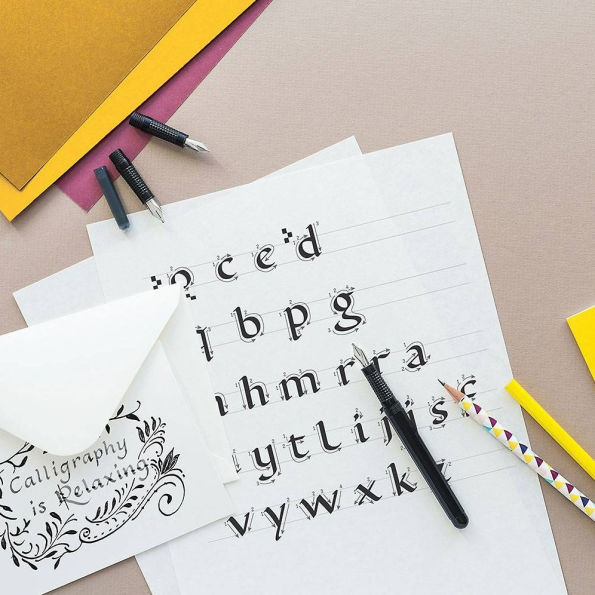 o c e d
l b p g
n h m r r a
u y t l i j j s c
v y w x k z
Calligraphy
is Relaxing